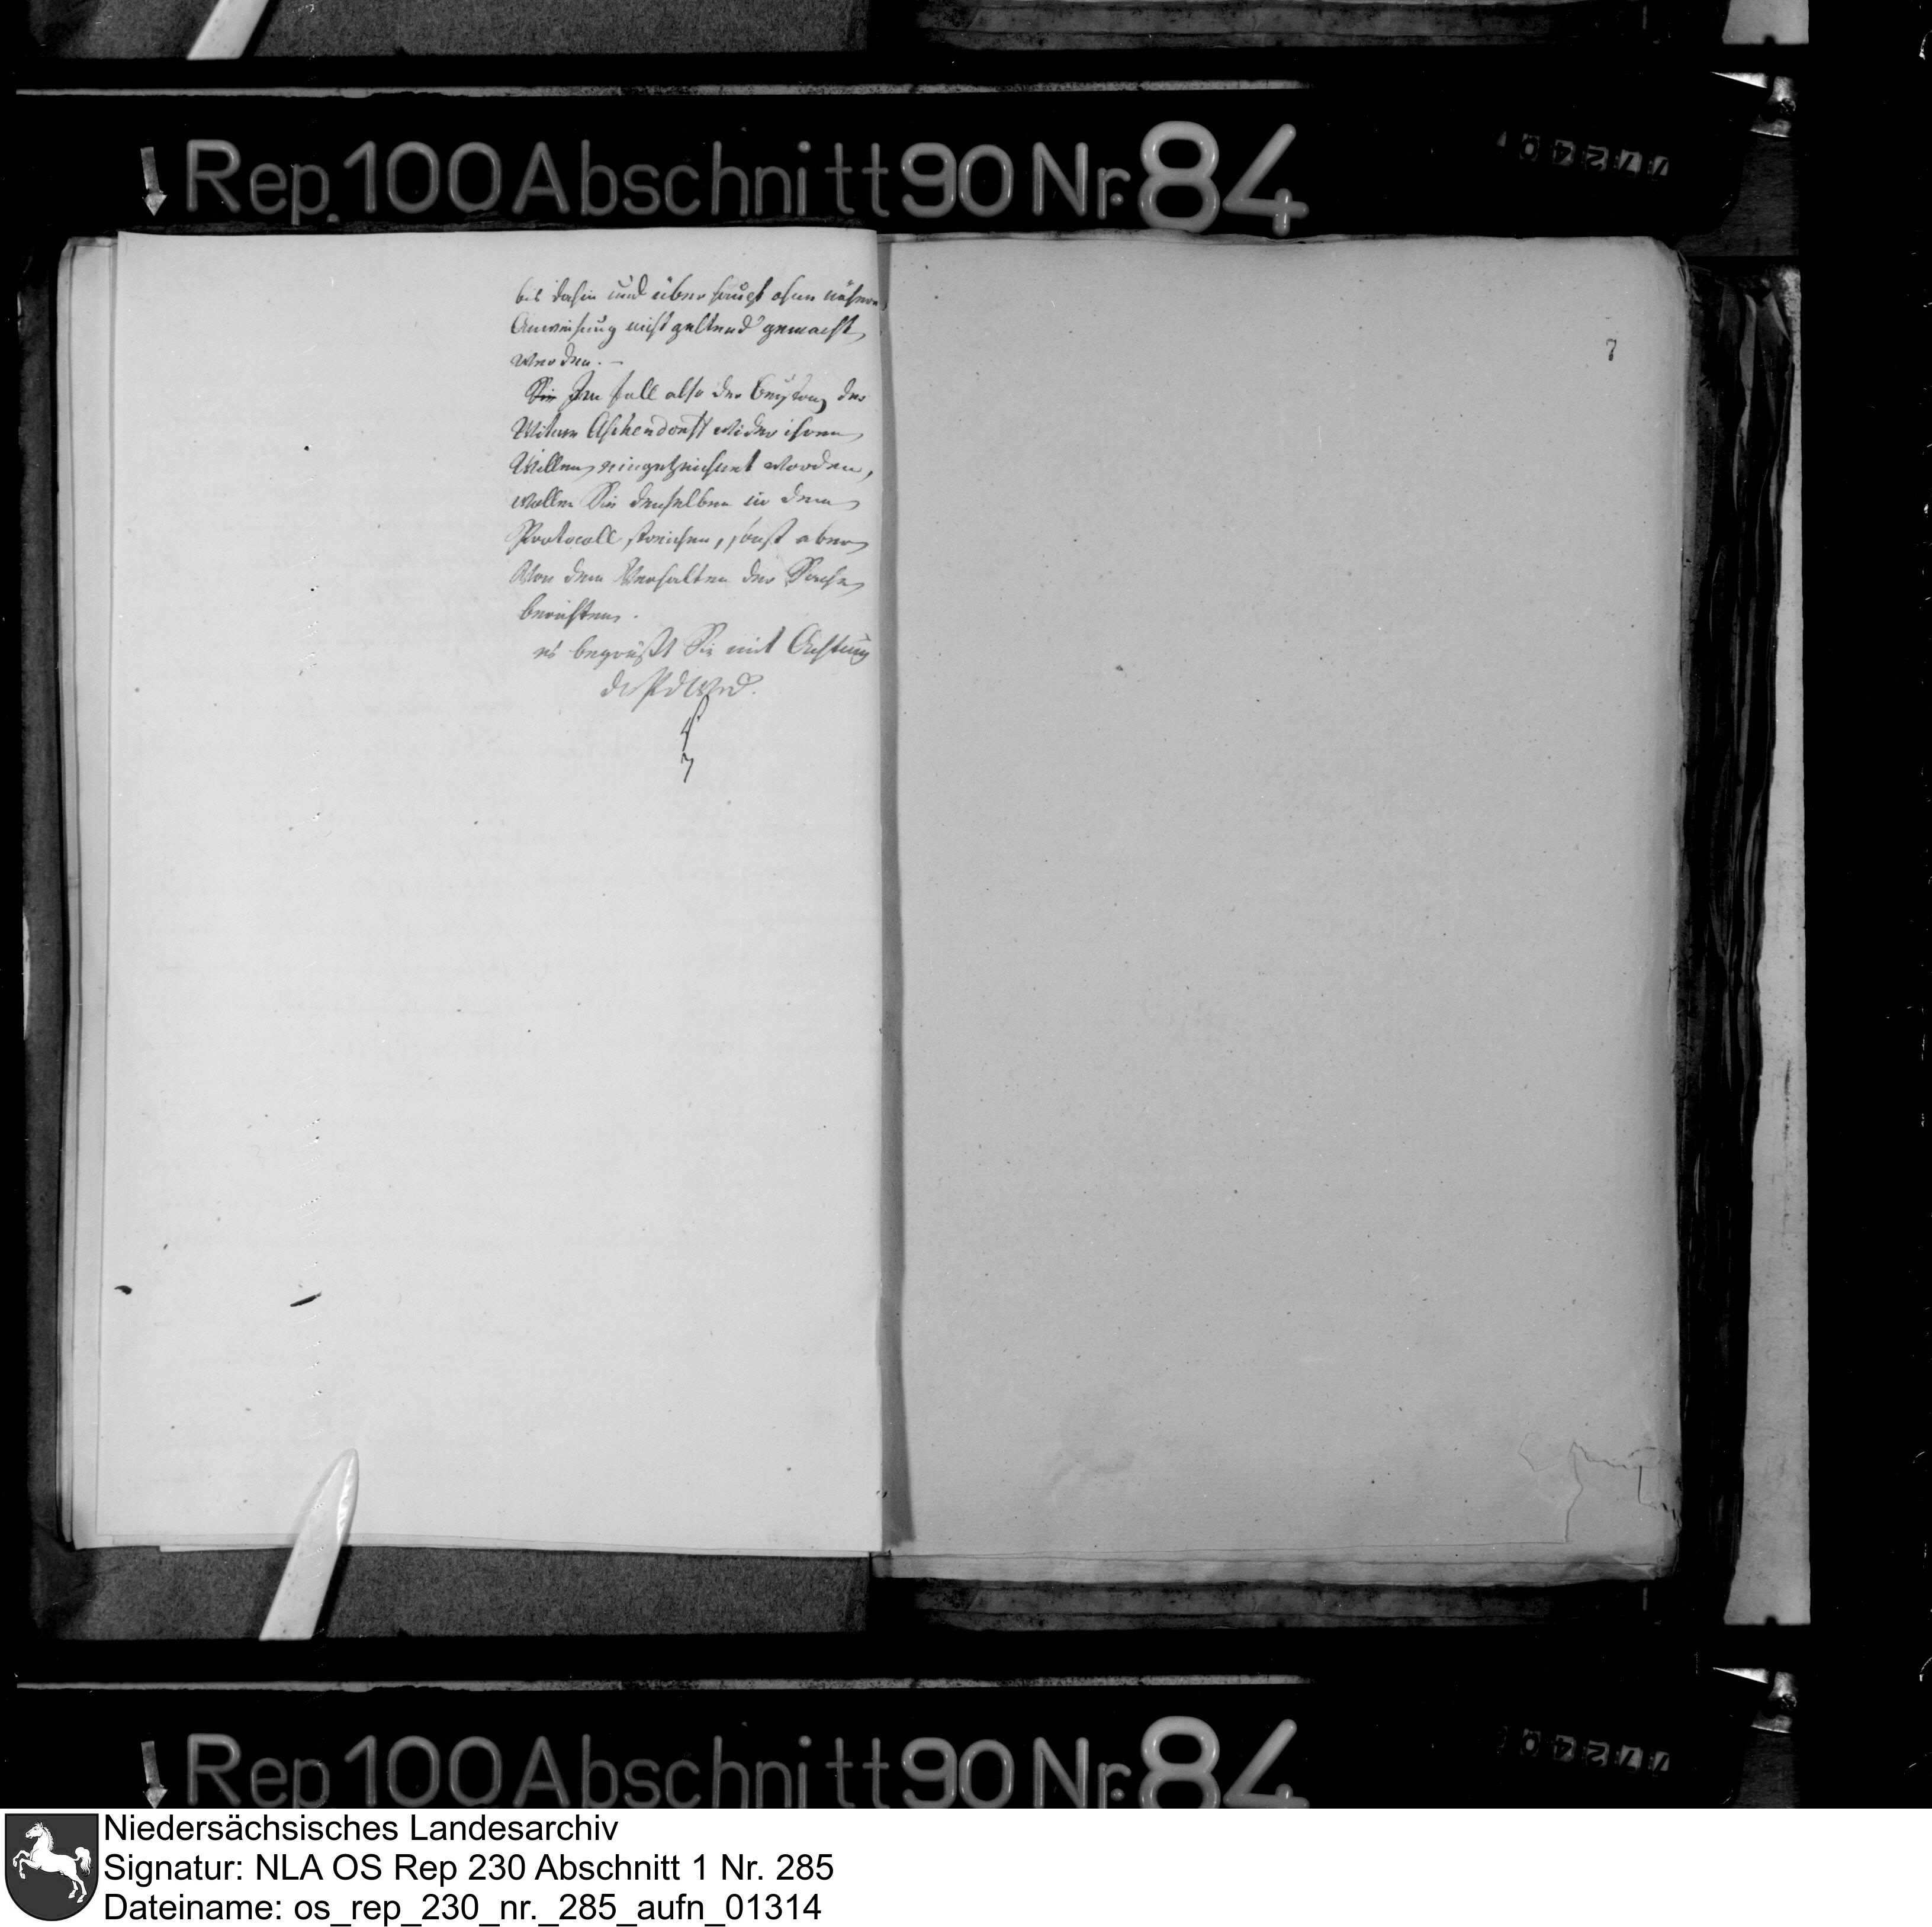 Rep. 100 Abschnitt 90 Nr. 84
bis dahin und überhaupt ohne nähere
Anweisung nicht geltend gemacht
werden. –
Sie Im fall also der Beytrag der
Witwe Aschendorff wider ihren
Willen eingezeichnet worden,
wollen Sie denselben in dem
Protocoll streichen, sonst aber
Von dem Verhalten der Sache
berichten.
es begrüßt Sie mit Achtung
7
Rep 100 Abschnitt 90 Nr. 84
Niedersächsisches Landesarchiv
Signatur: NLA OS Rep 230 Abschnitt 1 Nr. 285
Dateiname: os_rep_230_nr._285_aufn_01314